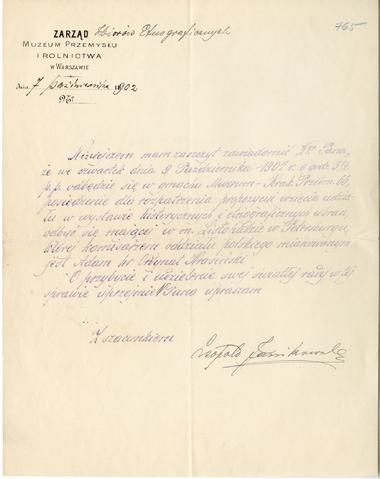 765
ZARZĄD Zbiorów Etnograficznych
MUZEUM PRZEMYSŁU
I ROLNICTWA
W WARSZAWIE
dnia 7 Października 1902
№
Niniejszem mam zaszczyt zawiadomić Wgo Pana,
że we czwartek dnia 9 Października 1902 r. o godz.
p.p. odbędzie się w gmachu Muzeum Krak. Przedm. 66,
posiedzenie dla rozpatrzenia propozycyi wzięcia udzia-
łu w wystawie historycznych i etnograficznych ubrań,
odbyć się mającej w m. Listopadzie w Petersburgu,
której komisarzem oddziału polskiego mianowanym
jest Adam hr. Krasiński
O przybycie i udzielenie swej światłej rady w tej
sprawie uprzejmie W Pana upraszam
Z szacunkiem
Leopold Janikowski